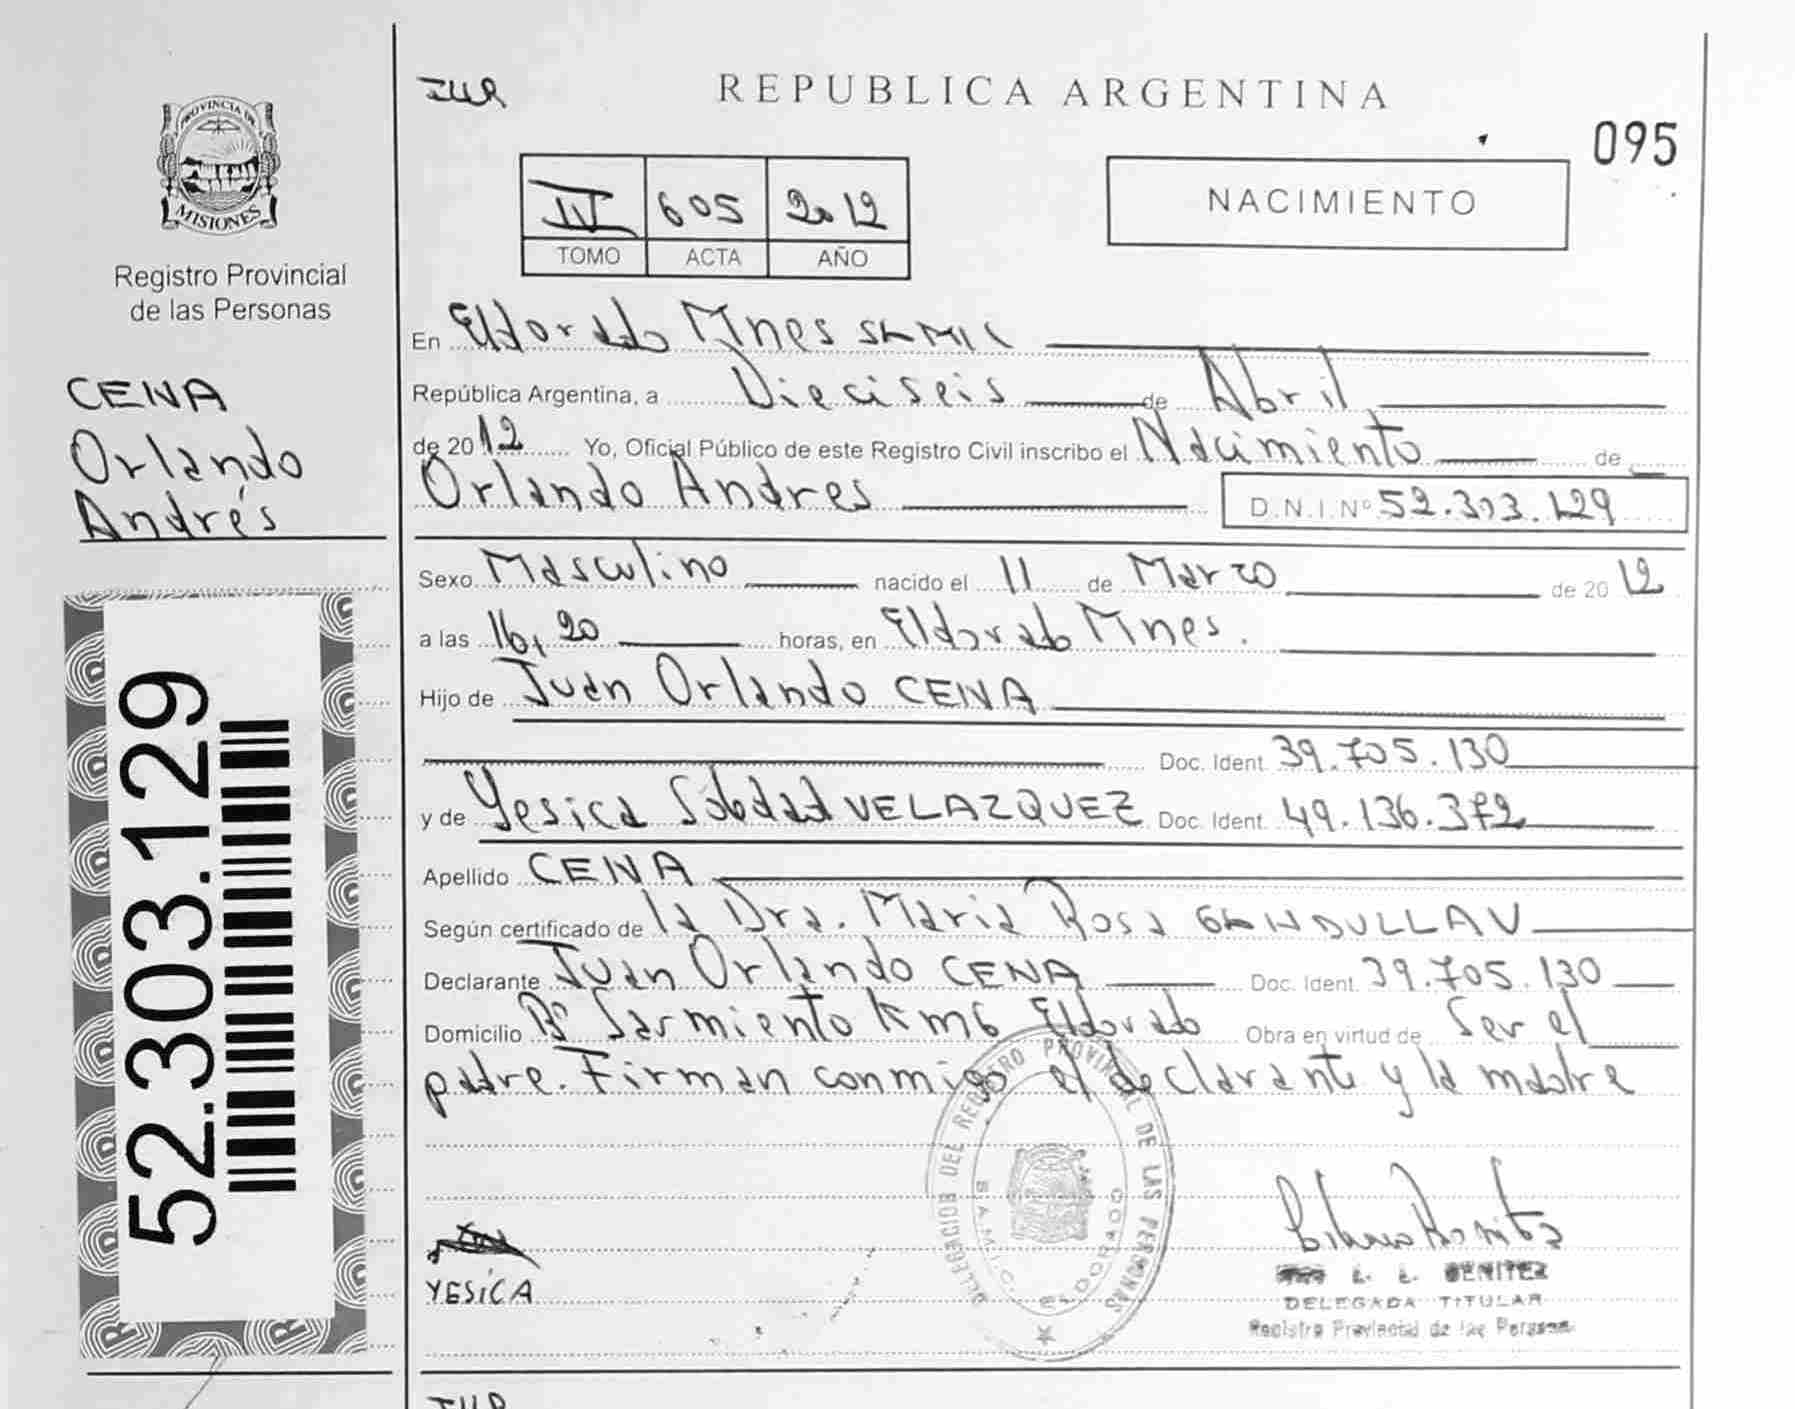 PROVINCIA DE
MISIONES
Registro Provincial
de las Personas
CENA
Orlando
Andrés
52.303.129
REPUBLICA ARGENTINA
095
IV 605 2012
TOMO ACTA AÑO
NACIMIENTO
En Eldorado Mnes SAMIC
República Argentina, a Dieciseis de Abril
de 2012 Yo, Oficial Público de este Registro Civil inscribo el Nacimiento de
Orlando Andres D.N.I. Nº 52.303.129
Sexo Masculino nacido el 11 de Marzo de 2012
a las 16,20 horas, en Eldorado Mnes.
Hijo de Juan Orlando CENA
Doc. Ident. 39.705.130
y de Yesica Soledad VELAZQUEZ Doc. Ident. 49.136.372
Apellido CENA
Según certificado de la Dra. Maria Rosa
Declarante Juan Orlando CENA Doc. Ident. 39.705.130
Domicilio Bº Sarmiento Km6 Eldorado Obra en virtud de Ser el
padre. Firman conmigo el declarante y la madre
DELEGACION DEL REGISTRO PROVINCIAL DE LAS PERSONAS
S.A.M.I.C. ELDORADO
YESiCA
BENITEZ
DELEGADA TITULAR
Registro Provincial de las Personas